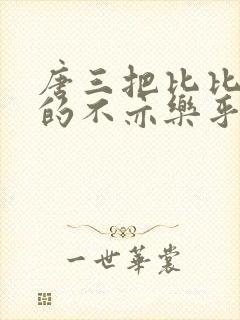 唐三把比比
的不亦樂乎
一世華裳